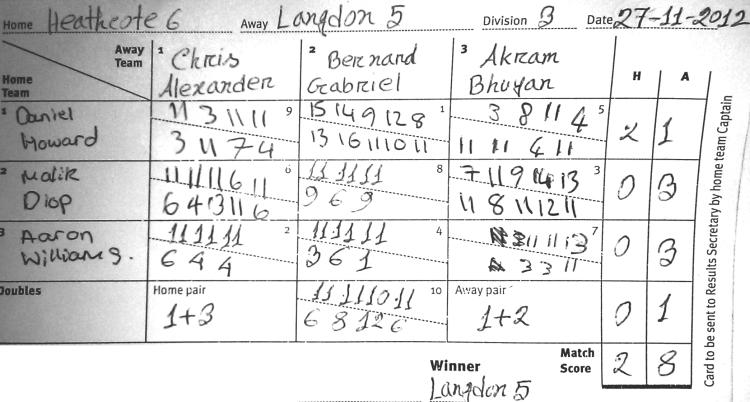 Home Heathcote 6 Away Langdon 5 Division 3 Date 27-11-2012
Away Team 1 Chris Alexander 2 Bernard Gabriel 3 Akram Bhuyan H A
Home Team
1 Daniel Howard 11 3 11 11 9 15 14 9 12 8 1 3 8 11 4 5 2 1
3 11 7 4 13 16 11 10 11 11 11 4 11
2 Malik Diop 11 11 11 6 11 6 11 11 11 8 7 11 9 14 13 3 0 3
6 4 13 11 6 9 6 9 11 8 11 12 11
3 Aaron Williams. 11 11 11 2 11 11 11 4 11 11 13 7 0 3
6 4 4 3 6 1 3 3 11
Doubles Home pair 1+3 11 11 10 11 10 Away pair 1+2 0 1
6 8 12 6
Winner Langdon 5 Match Score 2 8
Card to be sent to Results Secretary by home team Captain